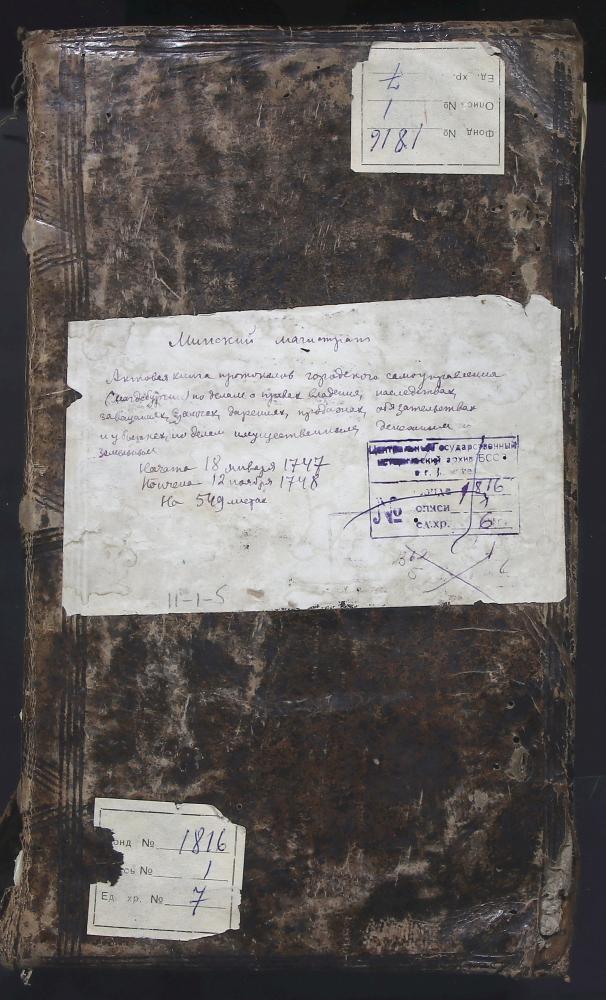 Фонд № 1816
Опись № 1
Ед. хр. 7
Минский магистрат
Актовая книга протоколов городского самоуправления
(магдебургии) по делам о правах владения, наследствах,
завещаниях, займах, дарениях, продажах, обязательствах
и у, по делам имущественным, денежным и
земельным
Начата 18 января 1747
Кончена 12 ноября 1748
На 549 листах
Центральный Государственный
исторический архив БССР
в г.
№ фонда 1816
описи 1
ед. хр. 6
11-1-5
онд № 1816
сь № 1
Ед. хр. № 7